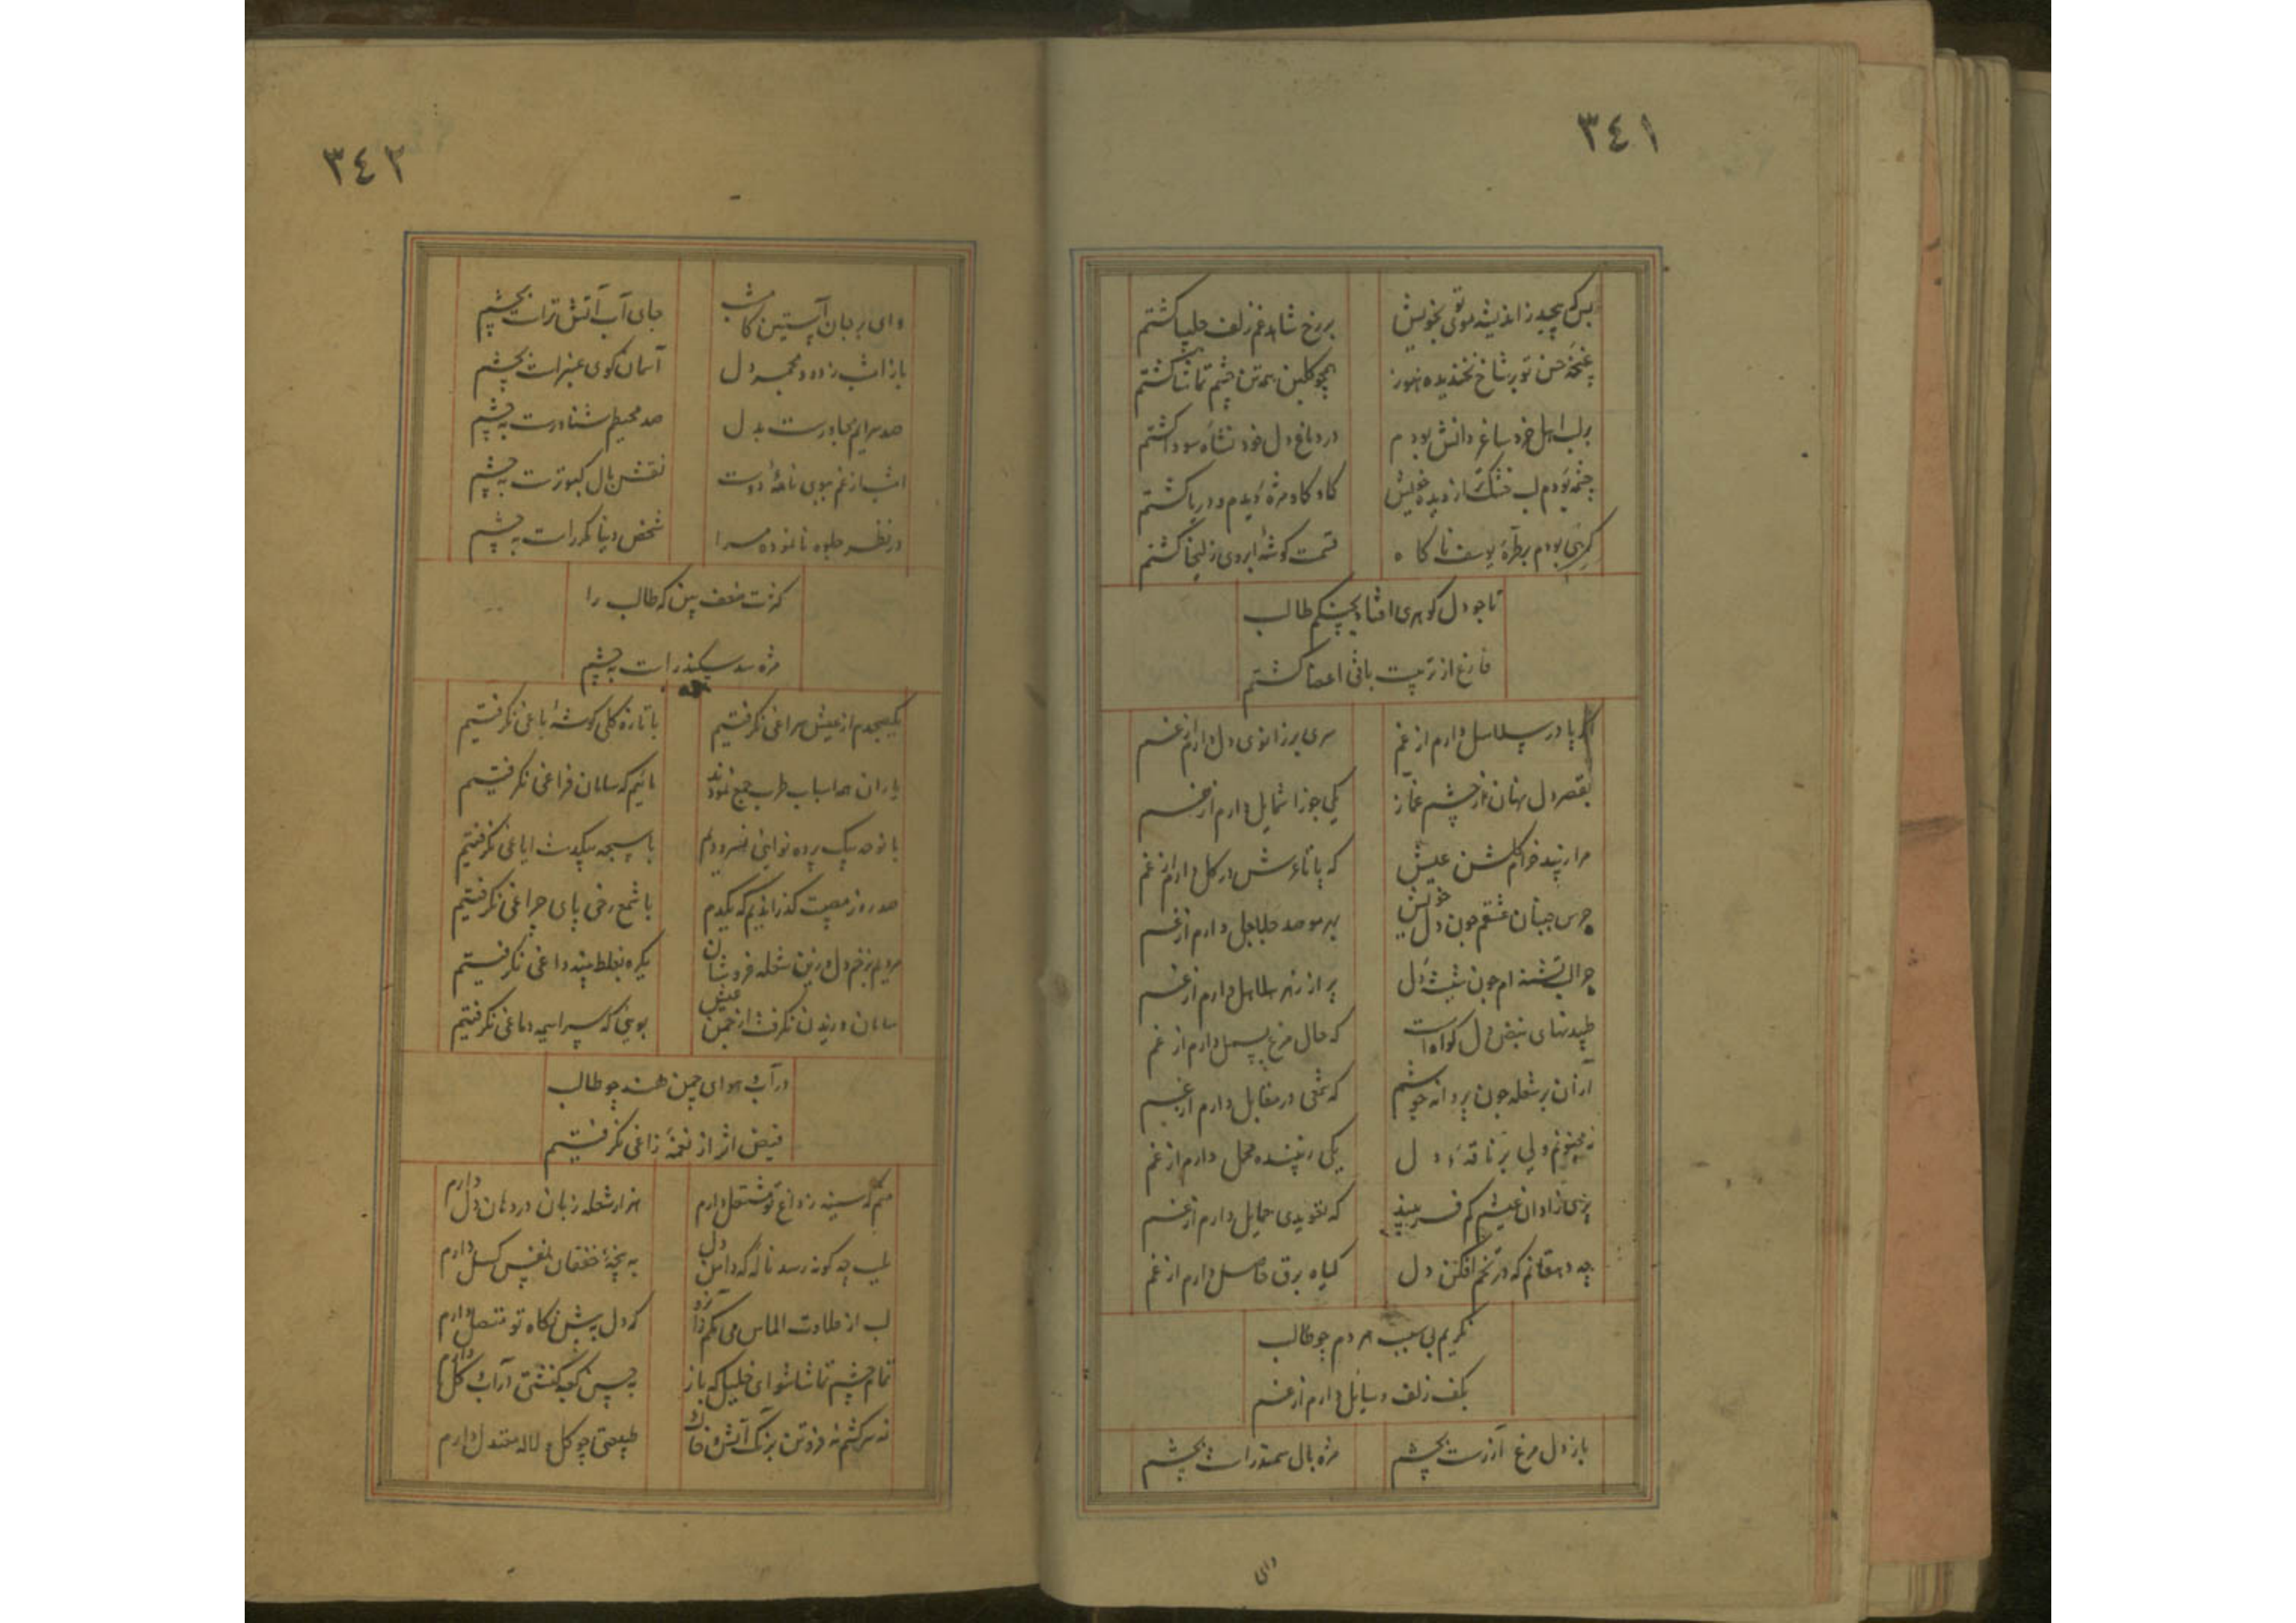 ٣٤١
بس که پیچید ز اندیشه موی تو بخویش
بر رخ شاهد غم زلف چلیپا گشتم
غنچهٔ حسن تو بر شاخ نخندیده هنوز
همچو گلبن همه تن چشم تماشا گشتم
بر لب اهل خرد ساغر دانش بودم
در دماغ دل خود نشاه سودا گشتم
چشمه بودم لب خشک از دیده خویش
کاو کاو مژه دیدم و دریا گشتم
گرهی بودم بر طرهٔ یوسف ناکاه
قسمت گوشهٔ ابروی زلیخا گشتم
تا چو دل گوهری افتاد بچنگم طالب
فارغ از تربیت باقی اعضا گشتم
اگر پا در سلاسل دارم از غم
سری بر زانوی دل دارم از غم
بقصر دل نهان از چشم غماز
یکی جوزا شمایل دارم از غم
مرا مپسند خرام گلشن عیش
که پا تا عرش در گل دارم از غم
جرس جنبان عشقم چون دل خویش
بهر مو صد جلاجل دارم از غم
چرا لب تشنه‌ام چون شیشهٔ دل
پر از زهر هلاهل دارم از غم
طپیدنهای نبض دل گواه است
که حال مرغ بسمل دارم از غم
از آن بر شعله چون پروانه جوشم
که شمعی در مقابل دارم از غم
نه مجنونم ولی بر ناقهٔ دل
یکی زیبنده محمل دارم از غم
پری زادان عیشم کم فریبند
که تعویذی حمایل دارم از غم
چه دهقانم که در تخم افکن دل
گیاه برق حاصل دارم از غم
نگریم بی سبب هر دم چو طالب
بکف زلف رسایل دارم از غم
باز دل مرغ آزرست بچشم
مژه بال سمندر است بچشم
وای
٣٤٢
وای بر جان آستین کامشب
جای آب آتش تر است بچشم
باز امشب ز دود مجمر دل
آسمان گوی عنبر است بچشم
صد سرابم مجاورست بدل
صد محیطم شناورست به چشم
امشب از غم ببوی نامهٔ دوست
نقش بال کبوترست به چشم
در نظر جلوه نانموده مرا
شخص دنیا مکرر است به چشم
کثرت ضعف بین که طالب را
مژه سد سکندر است به چشم
یک صبحدم از عیش سراغی نگرفتیم
با تازه گلی گوشهٔ باغی نگرفتیم
یاران همه اسباب طرب جمع نمودند
مائیم که سامان فراغی نگرفتیم
با نوحه بیک پرده نوایی نسرودیم
با سبحه بیکدست ایاغی نگرفتیم
صد روز مصیبت گذراندیم که یکدم
با شمع رخی پای چراغی نگرفتیم
مردیم بزخم دل و زین شعله فروشان
یکره بغلط پنبه داغی نگرفتیم
سامان وزیدن نگرفت از چمن عیش
بویی که سراسیمه دماغی نگرفتیم
در آب و هوای چمن هند چو طالب
فیض اثر از نغمهٔ زاغی نگرفتیم
منم که سینه ز داغ تو مشتعل دارم
هزار شعله زبان در دهان دل دارم
طبیب چه گونه رسد ناله که دامن دل
به پنجهٔ خفقان نفس گسل دارم
لب از حلاوت الماس می مکم زآنرو
که دل به پیش نگاه تو متصل دارم
تمام چشم تماشا شو ای خلیل که باز
به پیش کعبه کنشتی ز آب و گل دارم
نه سرکشم نه فروتن برنگ آتش و خاک
طبیعتی چو گل و لاله معتدل دارم